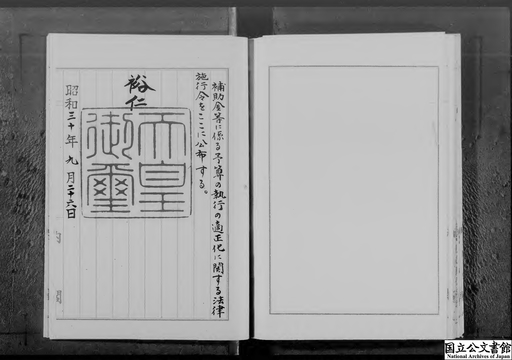 補助金等に係る予算の執行の適正化に関する法律
施行令をここに公布する。
裕仁
天皇
御璽
昭和三十年九月二十六日
国立公文書館
National Archives of Japan